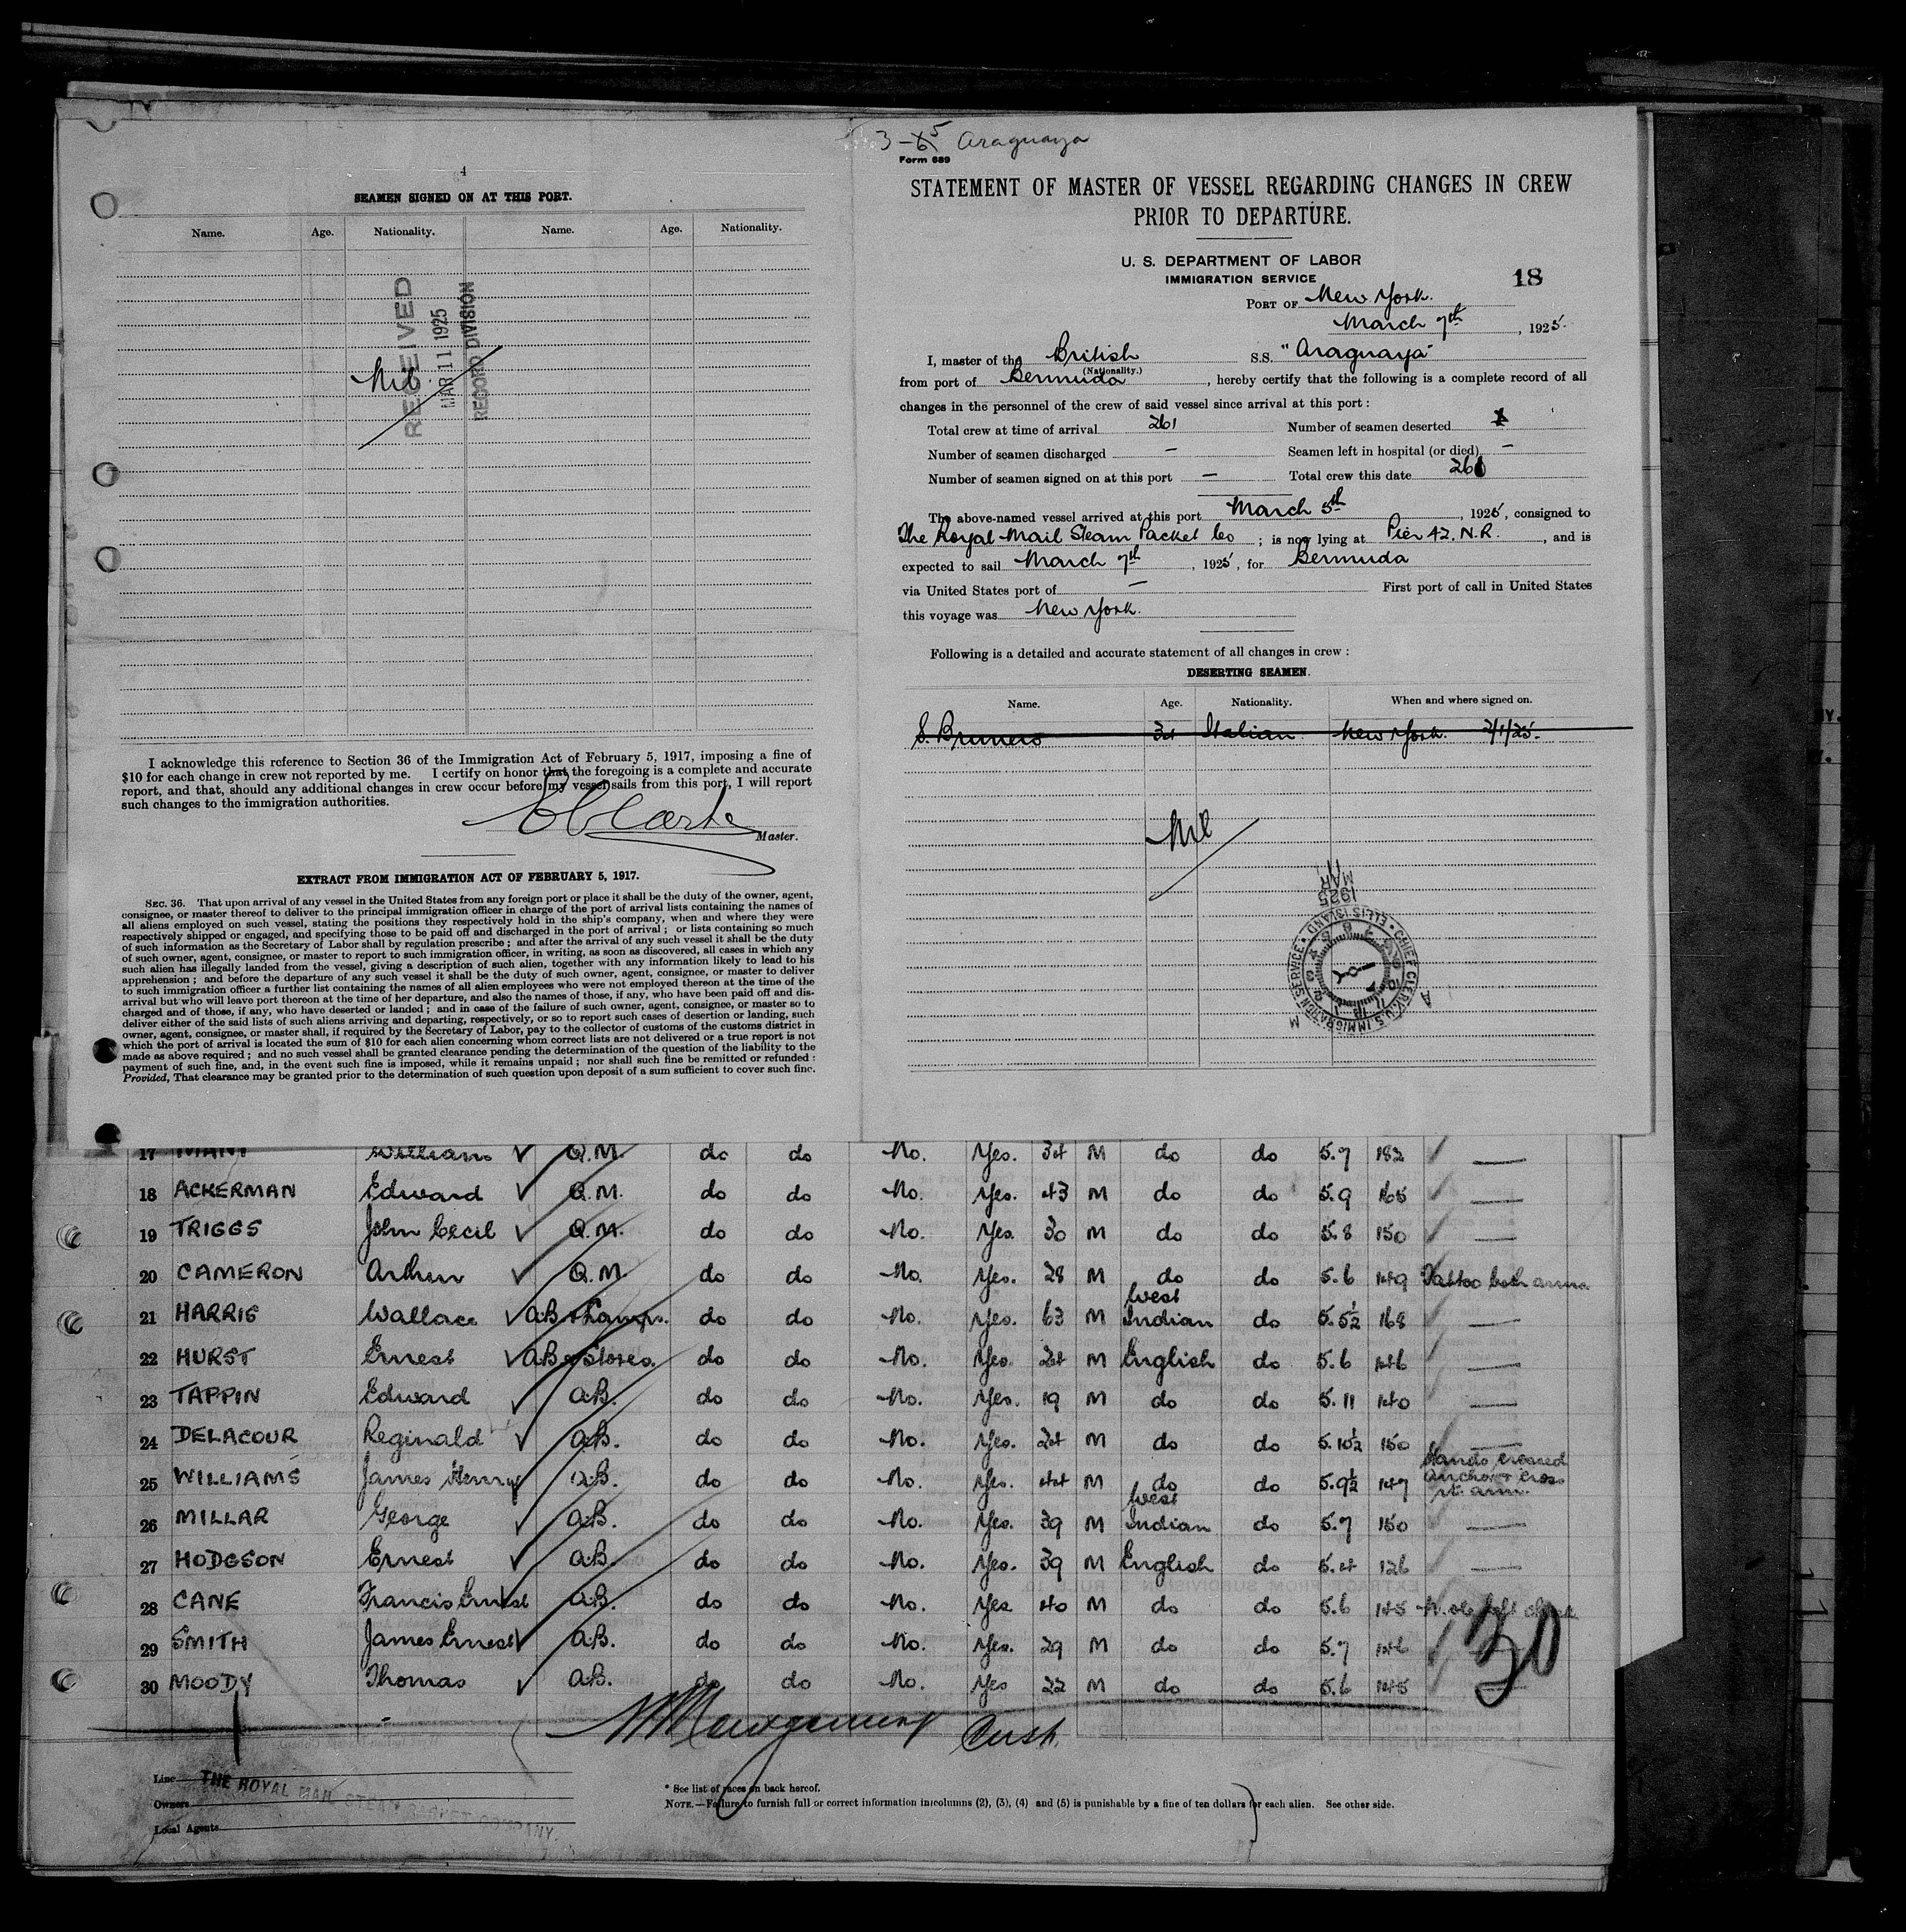 4
SEAMEN SIGNED ON AT THIS PORT.
Name. Age. Nationality. Name. Age. Nationality.
RECEIVED
MAR 11 1925
RECORD DIVISION
Nil
I acknowledge this reference to Section 36 of the Immigration Act of February 5, 1917, imposing a fine of
$10 for each change in crew not reported by me. I certify on honor that the foregoing is a complete and accurate
report, and that, should any additional changes in crew occur before my vessel sails from this port, I will report
such changes to the immigration authorities.
Master.
EXTRACT FROM IMMIGRATION ACT OF FEBRUARY 5, 1917.
SEC. 36. That upon arrival of any vessel in the United States from any foreign port or place it shall be the duty of the owner, agent,
consignee, or master thereof to deliver to the principal immigration officer in charge of the port of arrival lists containing the names of
all aliens employed on such vessel, stating the positions they respectively hold in the ship's company, when and where they were
respectively shipped or engaged, and specifying those to be paid off and discharged in the port of arrival; or lists containing so much
of such information as the Secretary of Labor shall by regulation prescribe; and after the arrival of any such vessel it shall be the duty
of such owner, agent, consignee, or master to report to such immigration officer, in writing, as soon as discovered, all cases in which any
such alien has illegally landed from the vessel, giving a description of such alien, together with any information likely to lead to his
apprehension; and before the departure of any such vessel it shall be the duty of such owner, agent, consignee, or master to deliver
to such immigration officer a further list containing the names of all alien employees who were not employed thereon at the time of the
arrival but who will leave port thereon at the time of her departure, and also the names of those, if any, who have been paid off and dis-
charged and of those, if any, who have deserted or landed; and in case of the failure of such owner, agent, consignee, or master so to
deliver either of the said lists of such aliens arriving and departing, respectively, or so to report such cases of desertion or landing, such
owner, agent, consignee, or master shall, if required by the Secretary of Labor, pay to the collector of customs of the customs district in
which the port of arrival is located the sum of $10 for each alien concerning whom correct lists are not delivered or a true report is not
made as above required; and no such vessel shall be granted clearance pending the determination of the question of the liability to the
payment of such fine, and, in the event such fine is imposed, while it remains unpaid; nor shall such fine be remitted or refunded:
Provided, That clearance may be granted prior to the determination of such question upon deposit of a sum sufficient to cover such fine.
3-5 Araguaya
Form 689
STATEMENT OF MASTER OF VESSEL REGARDING CHANGES IN CREW
PRIOR TO DEPARTURE.
U. S. DEPARTMENT OF LABOR
IMMIGRATION SERVICE
18
PORT OF New York.
March 7th, 1925.
I, master of the British S.S. "Araguaya"
(Nationality.)
from port of Bermuda, hereby certify that the following is a complete record of all
changes in the personnel of the crew of said vessel since arrival at this port:
Total crew at time of arrival 261 Number of seamen deserted
Number of seamen discharged - Seamen left in hospital (or died) -
Number of seamen signed on at this port - Total crew this date 261
The above-named vessel arrived at this port March 5th, 1925, consigned to
The Royal Mail Steam Packet Co; is now lying at Pier 42, N.R., and is
expected to sail March 7th, 1925, for Bermuda
via United States port of - First port of call in United States
this voyage was New York.
Following is a detailed and accurate statement of all changes in crew:
DESERTING SEAMEN.
Name. Age. Nationality. When and where signed on.
S. Brunero 34 Italian New York. 2/1/25.
Nil
MAR
1925
CHIEF CLERK U.S. IMMIGRATION SERVICE • ELLIS ISLAND
17 MANT William Q.M. do do No. Yes. 34 M do do 5.7 182 —
18 ACKERMAN Edward Q.M. do do No. Yes. 43 M do do 5.9 165 —
19 TRIGGS John Cecil Q.M. do do No. Yes. 30 M do do 5.8 150 —
20 CAMERON Arthur Q.M. do do No. Yes. 28 M do do 5.6 149 Tattoo both arms
21 HARRIS Wallace A.B & Lamps. do do No. Yes. 63 M West Indian do 5.5½ 168 —
22 HURST Ernest A.B & Stores. do do No. Yes. 24 M English do 5.6 146 —
23 TAPPIN Edward A.B. do do No. Yes. 19 M do do 5.11 140 —
24 DELACOUR Reginald A.B. do do No. Yes. 24 M do do 5.10½ 150 —
25 WILLIAMS James Henry A.B. do do No. Yes. 44 M do do 5.9½ 147 Hands crossed anchor & cross rt. arm.
26 MILLAR George A.B. do do No. Yes. 39 M West Indian do 5.7 150 —
27 HODGSON Ernest A.B. do do No. Yes. 39 M English do 5.4 126 —
28 CANE Francis Ernest A.B. do do No. Yes 40 M do do 5.6 145 left cheek
29 SMITH James Ernest A.B. do do No. Yes. 29 M do do 5.7 146
30 MOODY Thomas A.B. do do No. Yes 22 M do do 5.6 145 —
30
Line THE ROYAL MAIL STEAM PACKET COMPANY.
Owners
Local Agents
* See list of races on back hereof.
NOTE.—Failure to furnish full or correct information in columns (2), (3), (4) and (5) is punishable by a fine of ten dollars for each alien. See other side.